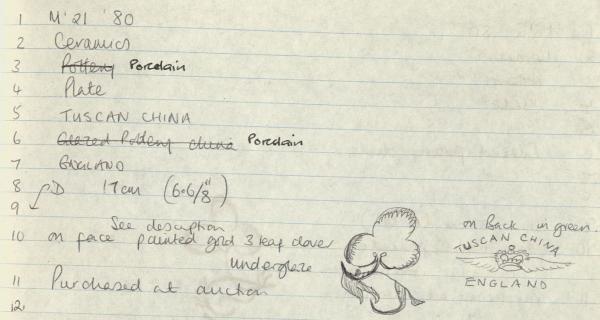 1 M'21 '80
2 Ceramics
3 Pottery Porcelain
4 Plate
5 TUSCAN CHINA
6 Glazed Pottery china Porcelain
7 ENGLAND
8 D 17cm (6.6/8")
9
See description
10 on face painted gold 3 leaf clover
underglaze
11 Purchased at auction
12
on Back in green.
TUSCAN CHINA
ENGLAND